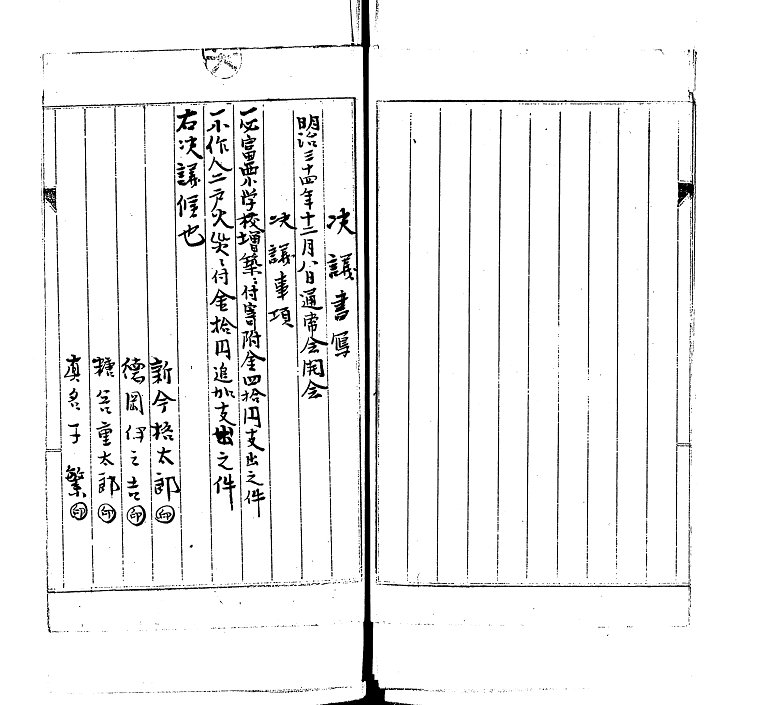 决議書写
明治三十四年十二月八日通常会開会
决議事項
一必富栗小学校増築ニ付寄附金四拾円支出之件
一小作人二戸火災ニ付金拾円追加支出之件
右决議候也
新今格太郎㊞
德岡伊之吉㊞
糖谷重太郎㊞
真名子繁㊞